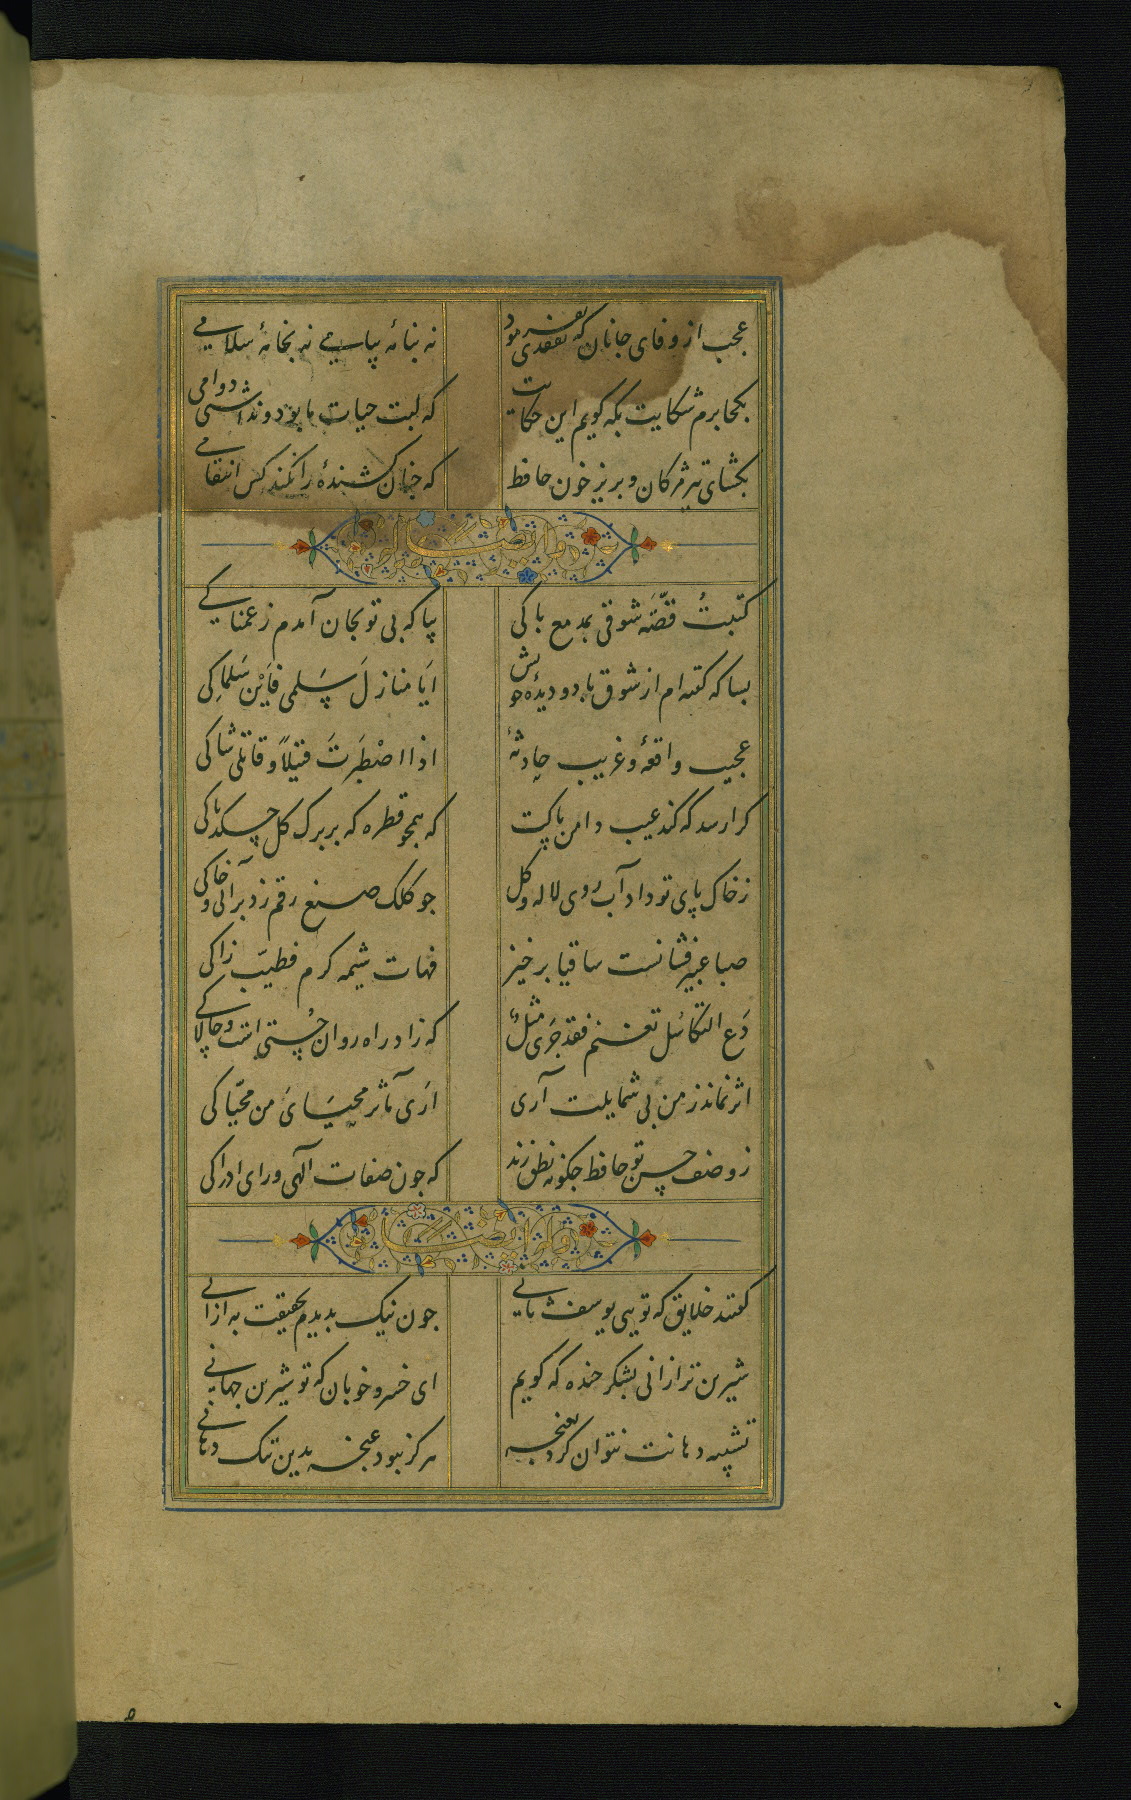 عجب از وفای جانان که تفقدی نفرمود
نه بنانهٔ پیامی نه بخانهٔ سلامی
بکجا برم شکایت بکه کویم این حکایت
که لبت حیات ما بود و نداشتی دوامی
بکشای تیر مژکان و بریز خون حافظ
که چنان کشندهٔ را نکند کس انتقامی
وله ایضا
کتبتُ قصّة شوقی بمدمع باکی
بیا که بی تو بجان آمدم ز غمناکی
بسا که کفته ام از شوق با دو دیدهٔ خویش
ایا منازلَ سَلمی فاَیْن سَلماکِ
عجیب واقعهٔ و غریب حادثهٔ
انا اصْطَبَرتَ قتیلاً و قاتلی شاکی
کرا رسد که کند عیب دامن پاکت
که همجو قطره که بر برک کل چکد پاکی
ز خاک پای تو داد آب روی لاله و کل
جو کلک صنع رقم زد بر آبی و خاکی
صبا عبیر فشانست ساقیا برخیز
فهات شیمه کرم فطیّب زاکی
دَع التکاسُل تغنم فقد جَری مثلٌ
که زاد راه روان چُستی است و چالاکی
اثر نماند ز من بی شمایلت آری
ارَی مآثر محیَایَ من محیّاکی
ز وصف حسن تو حافظ جکونه نطق زند
که جون صفات الهی ورای ادراکی
وله ایضا
کفتند خلایق که تویی یوسف ثانی
جون نیک بدیدم بحقیقت به ازانی
شیرین تر ازانی بشکر خنده که کویم
ای خسرو خوبان که تو شیرین جهانی
تشبیه دهانت نتوان کرد بغنچه
هرکز نبود غنچه بدین تنک دهانی